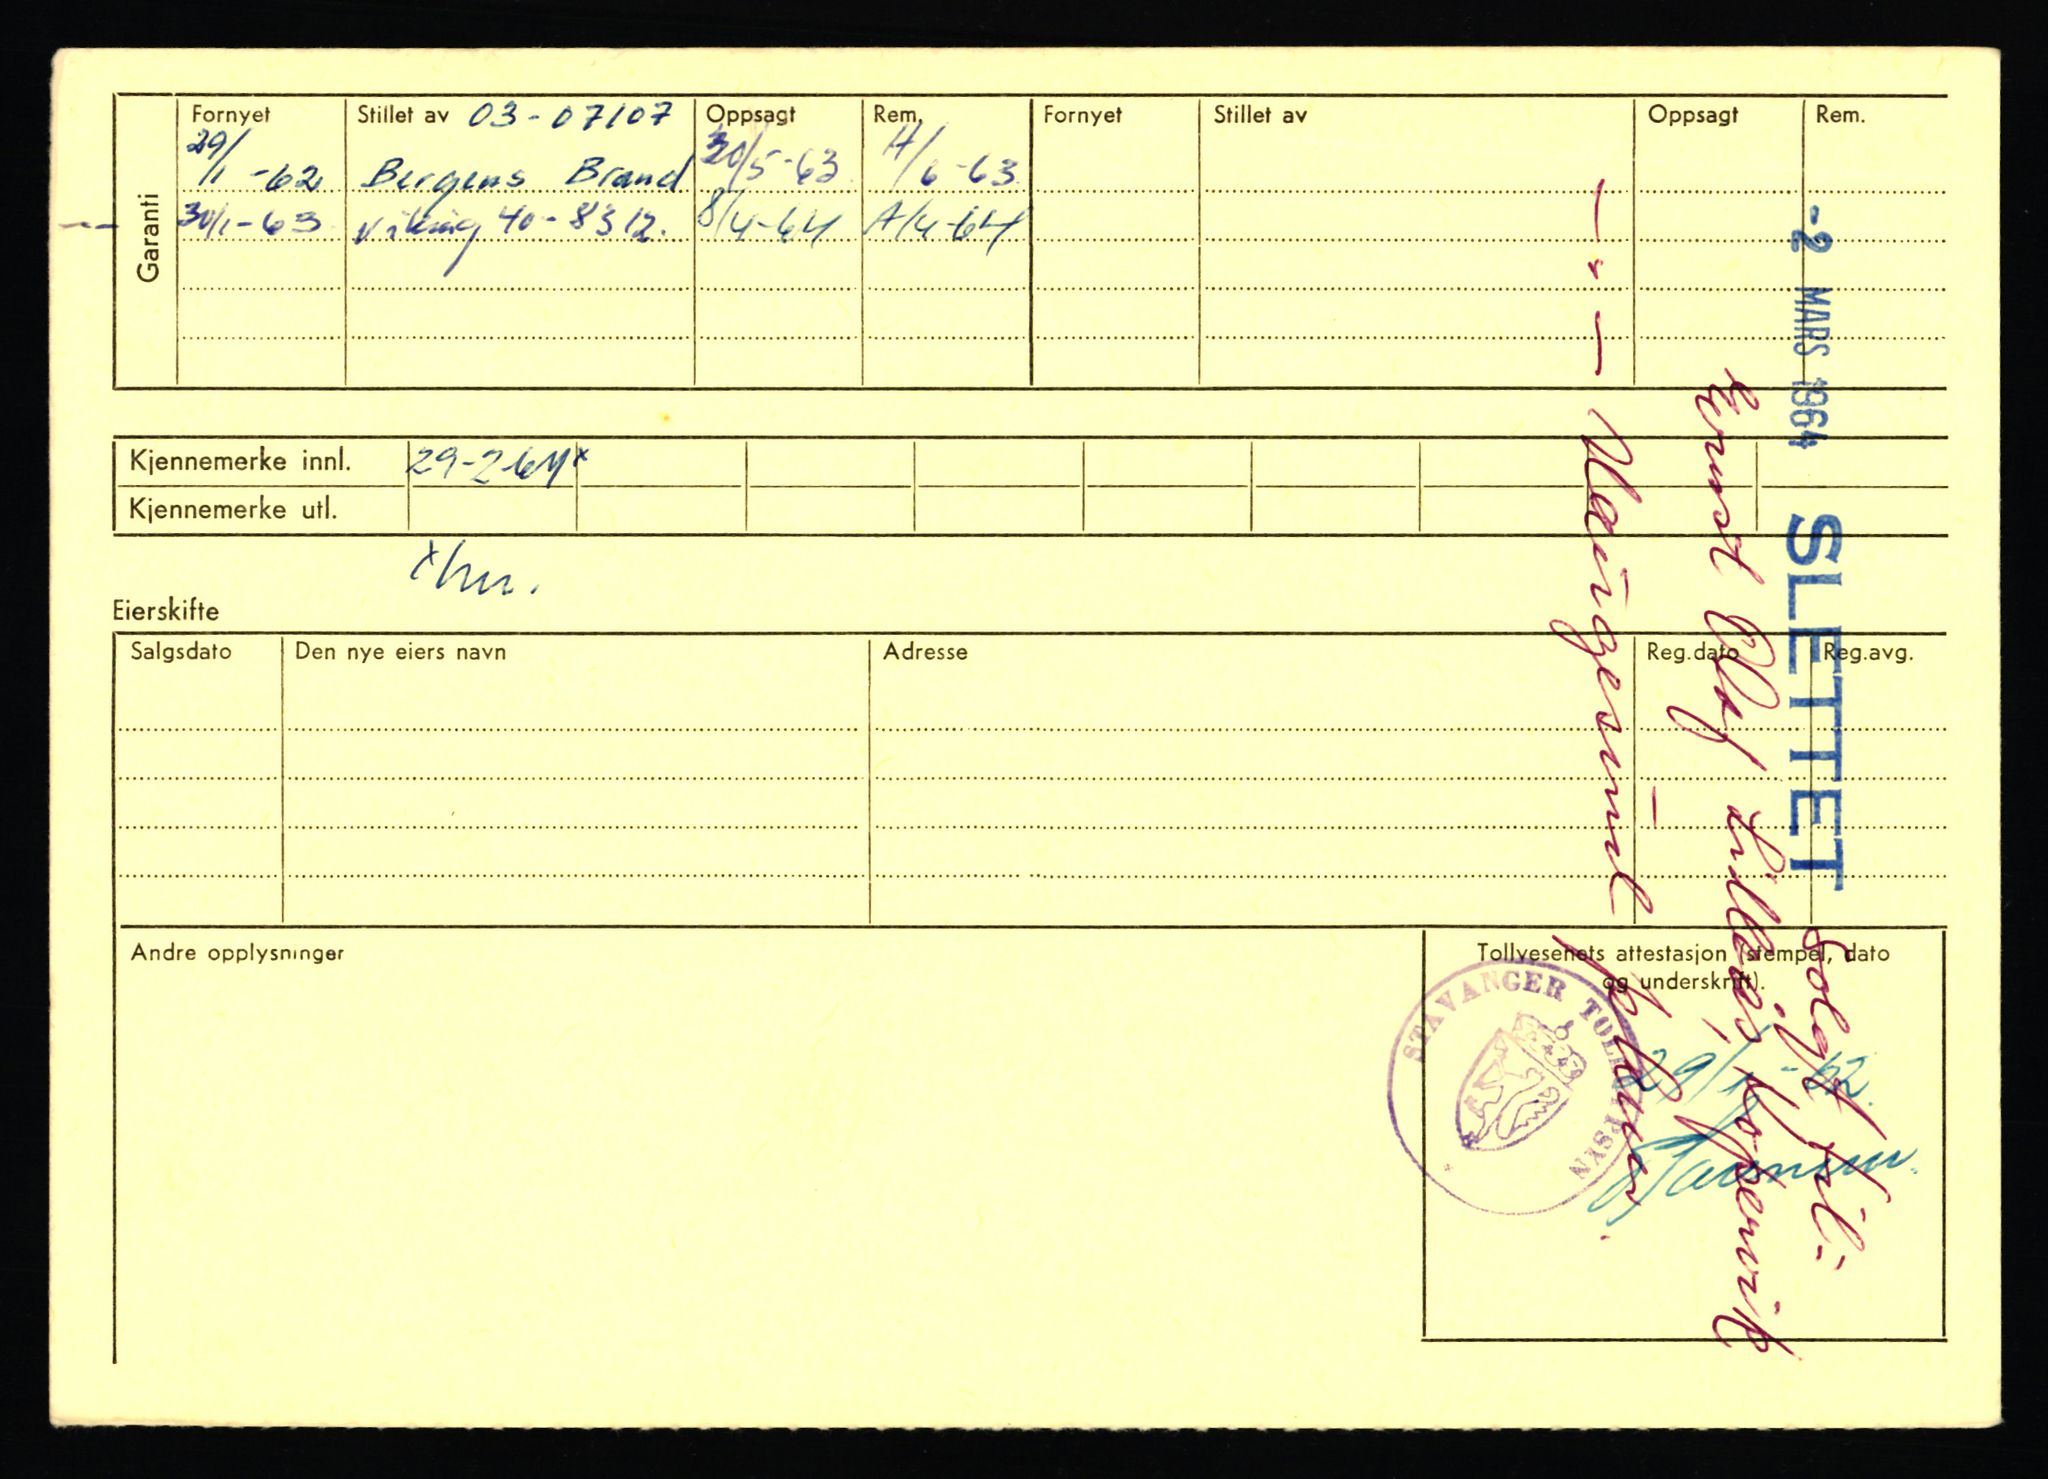 Garanti
Fornyet Stillet av 03-07107 Oppsagt Rem. Fornyet Stillet av Oppsagt Rem.
29/1-62 Bergens Brand 30/5-63 A/6-63
30/1-63 Viking 40-8312. 8/4-64 A/4-64
Kjennemerke innl. 29-2-64x
Kjennemerke utl.
Eierskifte
Salgsdato Den nye eiers navn Adresse Reg.dato Reg.avg.
Andre opplysninger
Tollvesenets attestasjon (stempel, dato
og underskrift).
STAVANGER TOLLOPPSYN
-2 MARS 1964 SLETTET
Solgt til:
Ernst Olaf Lilleås, Kopervik
Haugesund